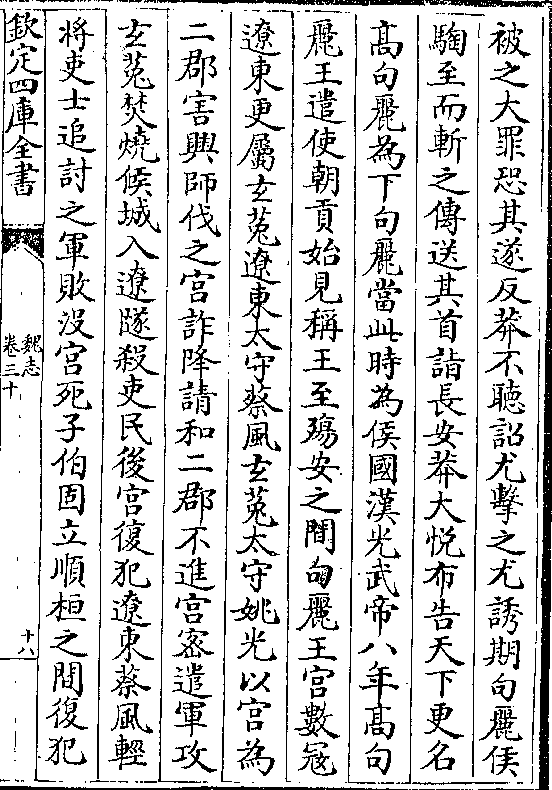 被之大罪恐其遂反莽不聽詔尤擊之尤誘期句麗侯
騊至而斬之傳送其首詣長安莽大悅布告天下更名
高句麗為下句麗當此時為侯國漢光武帝八年高句
麗王遣使朝貢始見稱王至殤安之間句麗王宮數冦
遼東更屬玄菟遼東太守蔡風玄菟太守姚光以宮為
二郡害興師伐之宮詐降請和二郡不進宮密遣軍攻
玄菟焚燒候城入遼隧殺吏民後宮復犯遼東蔡風輕
將吏士追討之軍敗没宮死子伯固立順桓之間復犯
欽定四庫全書
魏志
卷三十
十八